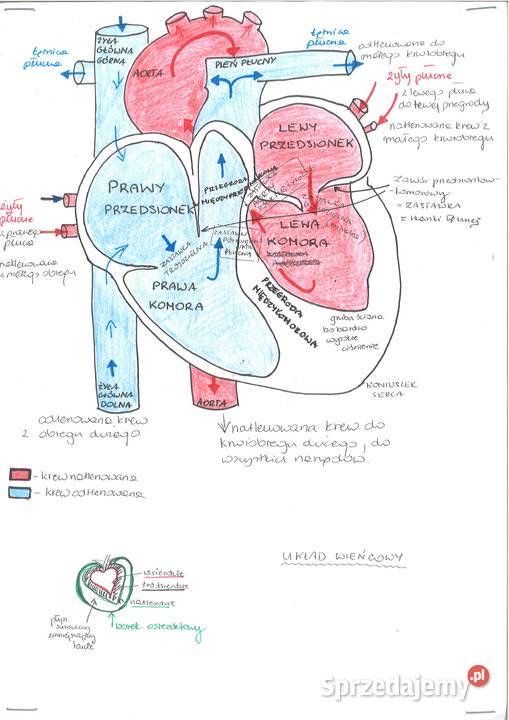 ŻYŁA
GŁÓWNA
GÓRNA
tętnica
płucna
AORTA
PIEŃ PŁUCNY
tętnica
płucna
odtlenowana do
małego krwiobiegu
żyły płucne
z lewego płuca
do lewej przegrody
natlenowana krew z
małego krwiobiegu
LEWY
PRZEDSIONEK
PRAWY
PRZEDSIONEK
PRZEGRODA
żyły
płucne
z prawego
płuca
natlenowana
z małego obiegu
ZASTAWKA
TRÓJDZIELNA
ZASTAWKA
PÓŁKSIĘŻ
PŁUCNA
LEWA
KOMORA
= ZASTAWKA
PRAWA
KOMORA
PRZEGRODA
MIĘDZYKOMOROWA
gruba ściana
bo bardzo
wysokie
ciśnienie
ŻYŁA
GŁÓWNA
DOLNA
AORTA
KONIUSZEK
SERCA
odtlenowana krew
z obiegu dużego
natlenowana krew do
krwiobiegu dużego, do
wszystkich narządów
- krew natlenowana
- krew odtlenowana
UKŁAD WIEŃCOWY
wsierdzie
śródsierdzie
nasierdzie
płyn
surowiczy
zmniejszający
tarcie
worek osierdziowy
Sprzedajemy.pl